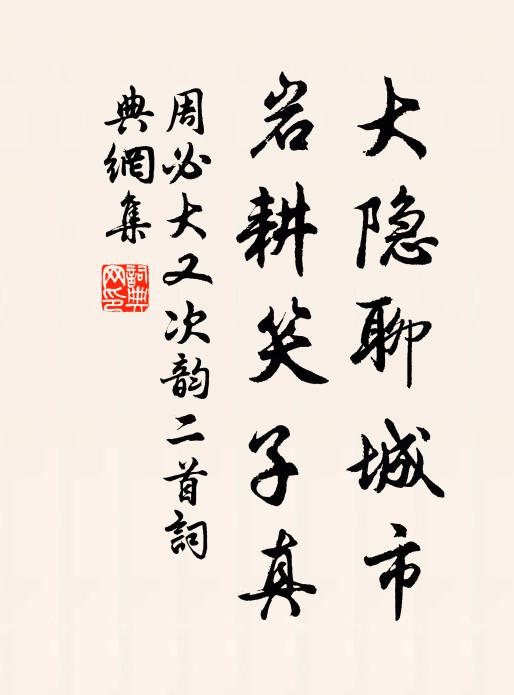 大隐聊城市
岩耕笑子真
周必大又次韵二首詞
典網集
詞典网印